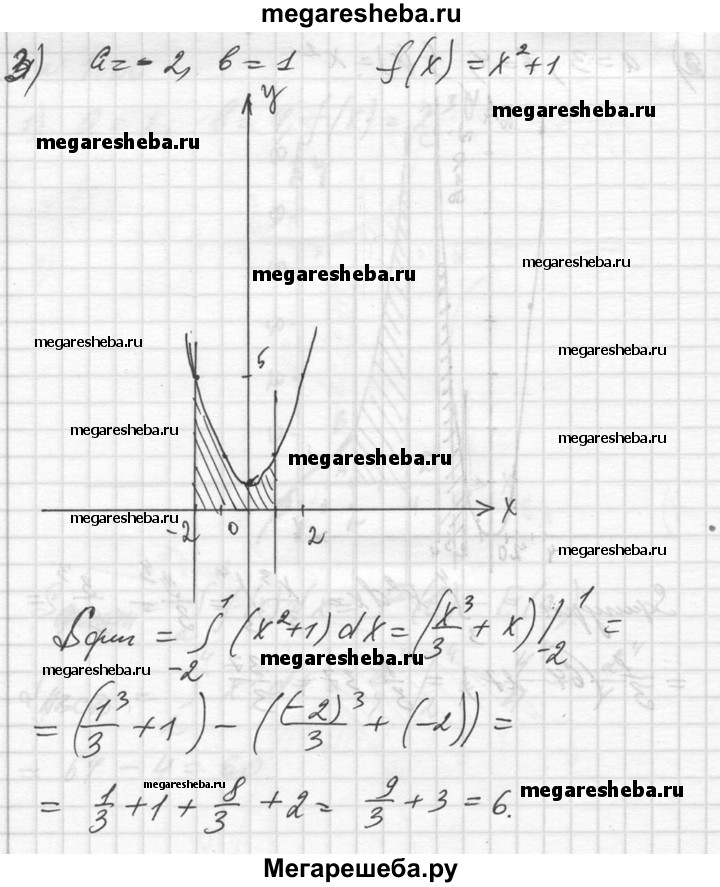 megaresheba.ru
3) a = -2, b = 1 f(x) = x² + 1
y
megaresheba.ru
megaresheba.ru
megaresheba.ru
megaresheba.ru
megaresheba.ru
megaresheba.ru
5
megaresheba.ru
megaresheba.ru
megaresheba.ru
x
megaresheba.ru
-2 0 2
megaresheba.ru
Sфиг = ∫₋₂¹ (x²+1) dx = (x³/3 + x) |₋₂¹ =
megaresheba.ru
megaresheba.ru
= (1³/3 + 1) - ((-2)³/3 + (-2)) =
megaresheba.ru
megaresheba.ru
= 1/3 + 1 + 8/3 + 2 = 9/3 + 3 = 6.
Мегарешеба.ру